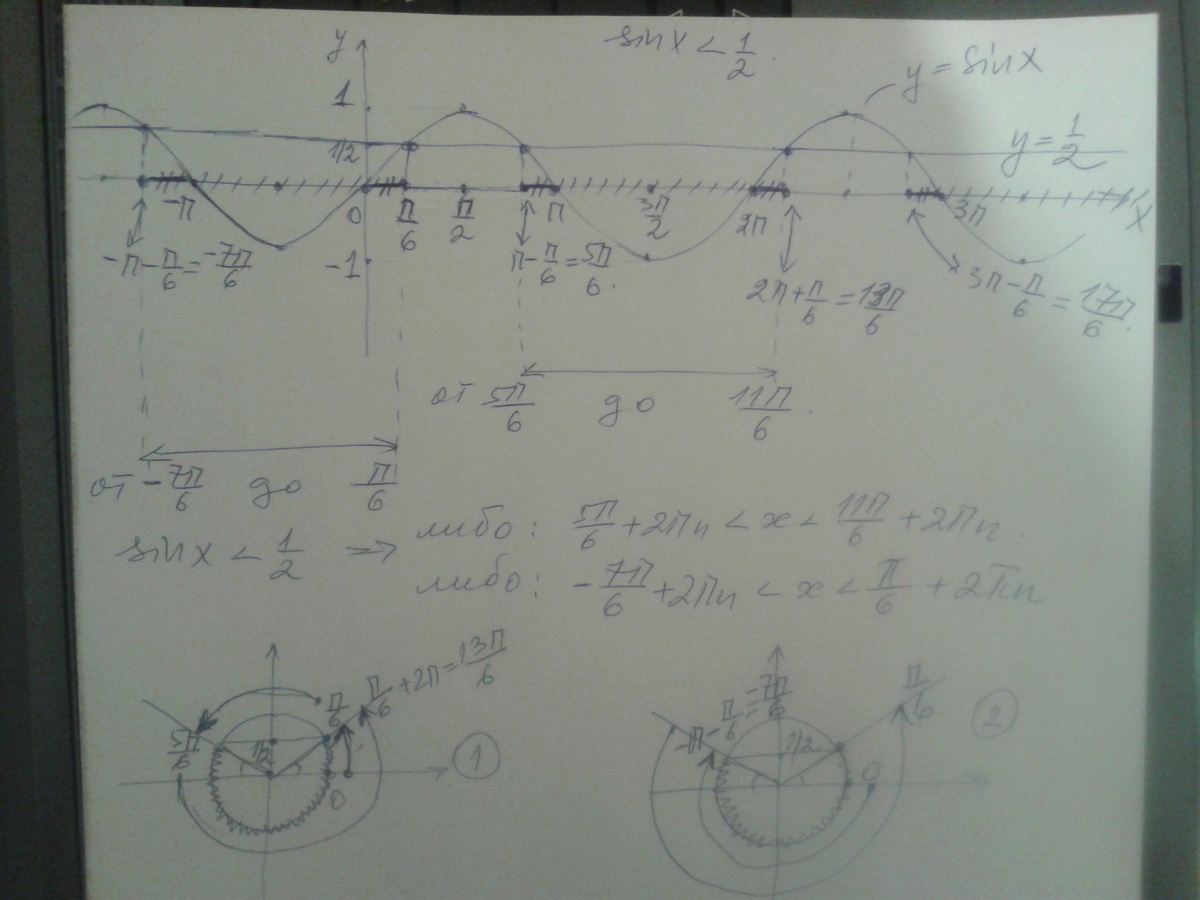 sin x < 1/2.
y
y = sin x
1
1/2
y = 1/2
-π
0
π/6
π/2
π
3π/2
2π
3π
x
-1
-π - π/6 = -7π/6
π - π/6 = 5π/6.
2π + π/6 = 13π/6
3π - π/6 = 17π/6.
от 5π/6 до 11π/6.
от -7π/6 до π/6
sin x < 1/2 =>
либо: 5π/6 + 2πn < x < 11π/6 + 2πn.
либо: -7π/6 + 2πn < x < π/6 + 2πn
5π/6
1/2
π/6
π/6 + 2π = 13π/6
0
1
-π - π/6 = 7π/6
1/2
π/6
0
2